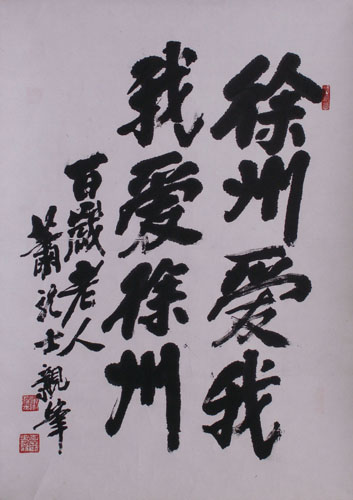 徐州爱我
我爱徐州
百歲老人
蕭龙士親筆